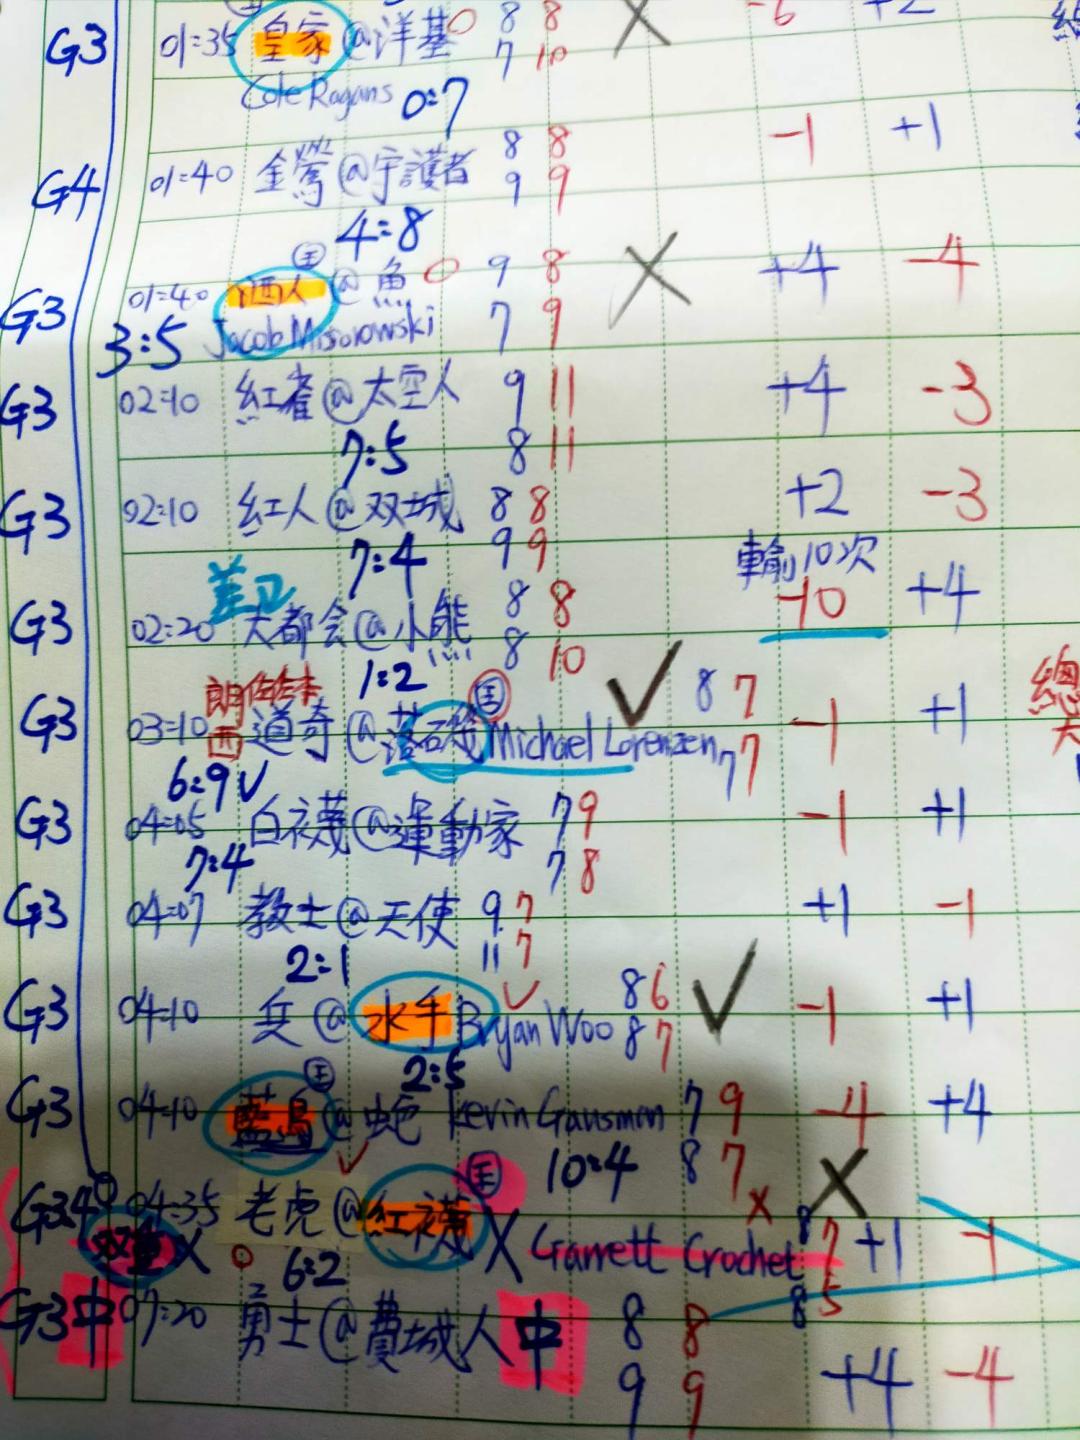 8 8 -6 +2
G3 01:35 皇家@洋基 ○ 7 10 X
Cole Ragans 0:7
8 8 -1 +1
G4 01:40 金鶯@守護者 9 9
4:8
主
G3 01:40 酒人@魚 ○ 9 8 X +4 -4
3:5 Jacob Misorowski 7 9
G3 02:10 紅雀@太空人 9 11 +4 -3
7:5 8 11
G3 02:10 紅人@双城 8 8 +2 -3
7:4 9 9 輸10次
差卫
G3 02:20 大都会@小熊 8 8 -10 +4
1:2 8 10
朗佐佐木 主 ✓ 8 7 總
G3 03:10 西 道奇@落石磯 Michael Lorenzen 7 7 -1 +1 大
6:9 ✓
G3 04:05 白襪@運動家 7 9 -1 +1
7:4 7 8
G3 04:07 教士@天使 9 7 +1 -1
2:1 11 7
G3 04:10 兵@水手 Bryan Woo ✓ 8 6 ✓ -1 +1
2:5 8 7
主
G3 04:10 藍鳥@蛇 Kevin Gausman 7 9 -4 +4
✓ 10:4 8 7
主 X X
G34 04:35 老虎@紅襪 X Garrett Crochet 8 7 +1 -1
双重 X ○ 6:2 8 5
G3中 07:20 勇士@費城人 中 8 8
9 9 +4 -4